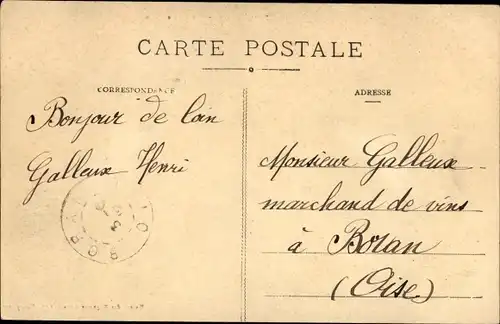 CARTE POSTALE
CORRESPONDANCE
ADRESSE
Bonjour de loin
Galleux Henri
Monsieur Galleux
marchand de vins
à Boran
(Oise)